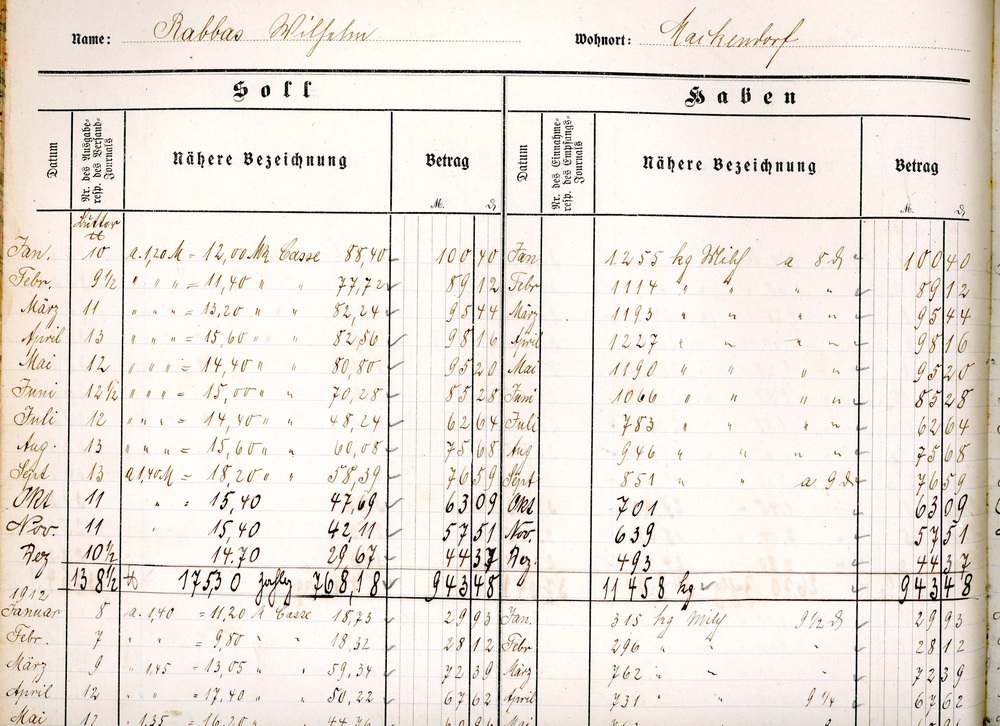 Name: Rabbas Wilhelm Wohnort: Mackendorf
Soll Haben
Datum Nr. des Ausgabe- resp. des Versand-Journals Nähere Bezeichnung Betrag Datum Nr. des Einnahme- resp. des Empfangs-Journals Nähere Bezeichnung Betrag
M. ₰ M. ₰
Butter
℔
Jan. 10 a. 1,20 M = 12,00 Mk Casse 88,40 100 40 Jan 1255 kg Milch a 8 ₰ 100 40
Febr. 9½ " " " = 11,40 " " 77,72 89 12 Febr 1114 " " " " 89 12
März 11 " " " = 13,20 " " 82,24 95 44 März 1193 " " " " 95 44
April 13 " " " = 15,60 " " 82,56 98 16 April 1227 " " " " 98 16
Mai 12 " " " = 14,40 " " 80,80 95 20 Mai 1190 " " " " 95 20
Juni 12½ " " " = 15,00 " " 70,28 85 28 Juni 1066 " " " " 85 28
Juli 12 " " " = 14,40 " " 48,24 62 64 Juli 783 " " " " 62 64
Aug. 13 " " " = 15,60 " " 60,08 75 68 Aug 946 " " " " 75 68
Sept 13 a 1,40 M = 18,20 " " 58,39 76 59 Sept 851 " " a 9 ₰ 76 59
Okt 11 " = 15,40 47,69 63 09 Okt 701 63 09
Nov. 11 " 15,40 42,11 57 51 Nov. 639 57 51
Dez 10½ 14.70 29 67 44 37 Dez. 493 44 37
138½ ℔ 175 30 768,18 943 48 11458 kg 943 48
1912
Januar 8 a. 1,40 = 11,20 M Casse 18,73 29 93 Jan. 315 kg Milch 9½ ₰ 29 93
Febr. 7 " " = 9,80 " " 18,32 28 12 Febr 296 " " " 28 12
März 9 " 1,45 = 13,05 " " 59,34 72 39 März 762 " " " 72 39
April 12 " " = 17,40 " " 50,22 67 62 April 731 " " 9¼ 67 62
Mai 12 " 1,35 = 16,20 " " 44,76 Mai